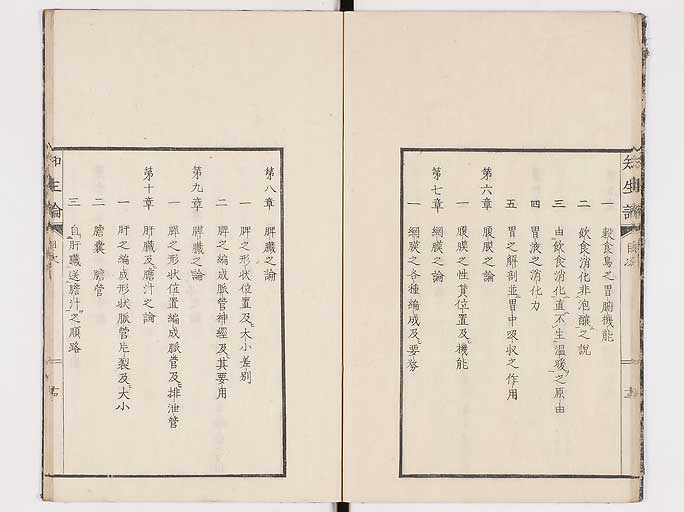 知生論 目次
一 穀食鳥之胃腑機能
二 飲食消化非泡釀之說
三 由飲食消化直不生溫暖之原由
四 胃液之消化力
五 胃之解剖並胃中吸收之作用
第六章 腹膜之論
一 腹膜之性質位置及機能
第七章 網膜之論
一 網膜之各種編成及要務
第八章 脾臟之論
一 脾之形状位置及大小差別
二 脾之編成脈管神經及其要用
第九章 膵臟之論
一 膵之形状位置編成脈管及排泄管
第十章 肝臟及膽汁之論
一 肝之編成形状脈管裂及大小
二 膽囊 膽管
三 自肝臟送膽汁之順路
知生論 目次